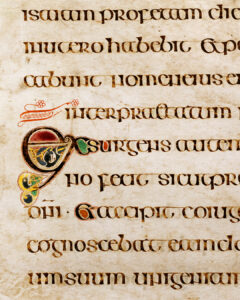 isaiam profetam dice
inutero habebit Et p
cabunt nomen eius e
interpraetatum
Exsurgens autem
no fecit sicut prae
dni · Et accipit coniug
cognoscebat eam do
um suum unigenitum